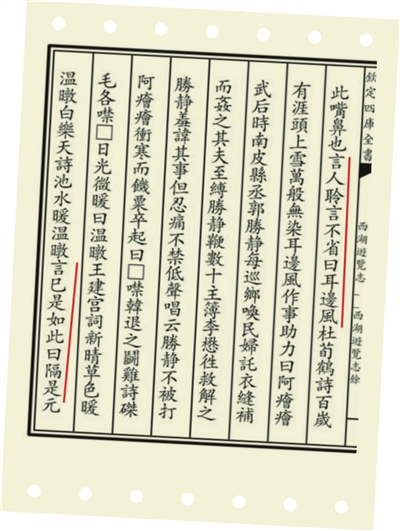 欽定四庫全書
西湖遊覽志 西湖遊覽志餘
此嘴鼻也言人聆言不省曰耳邊風杜荀鶴詩百歲
有涯頭上雪萬般無染耳邊風作事助力曰阿癐癐
武后時南皮縣丞郭勝靜每巡鄉喚民婦託衣縫補
而姦之其夫至縛勝靜鞭數十主簿李懋徃救解之
勝靜羞諱其事但忍痛不禁低聲唱云勝靜不被打
阿癐癐衝寒而饑粟卒起曰□噤韓退之鬭雞詩磔
毛各噤□日光微暖曰溫暾王建宫詞新晴草色暖
溫暾白樂天詩池水暖溫暾言已是如此曰隔是元